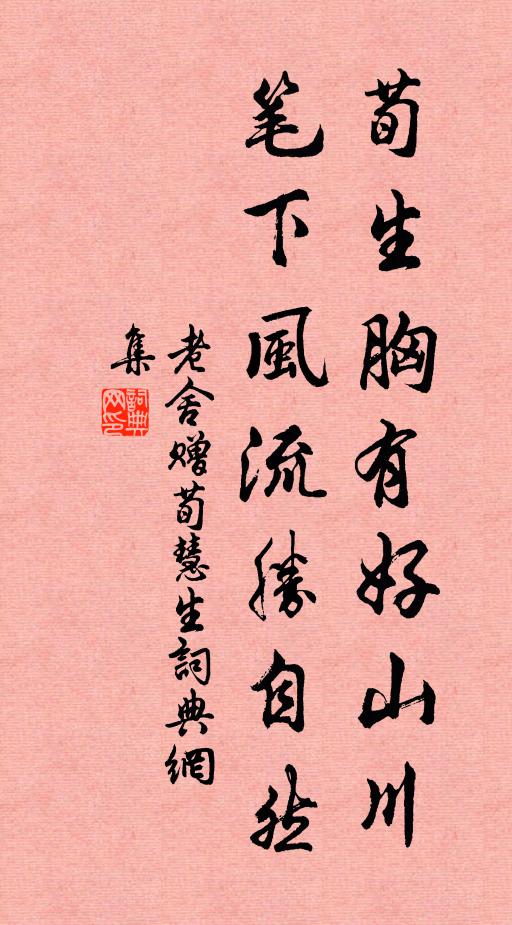 荀生胸有好山川
笔下風流勝自然
老舍赠荀慧生詞典網
集
詞典
网印